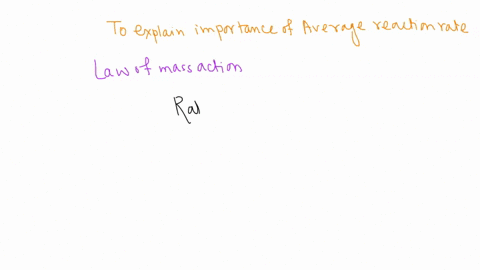 To explain importance of Average reaction rate
Law of mass action
Ra